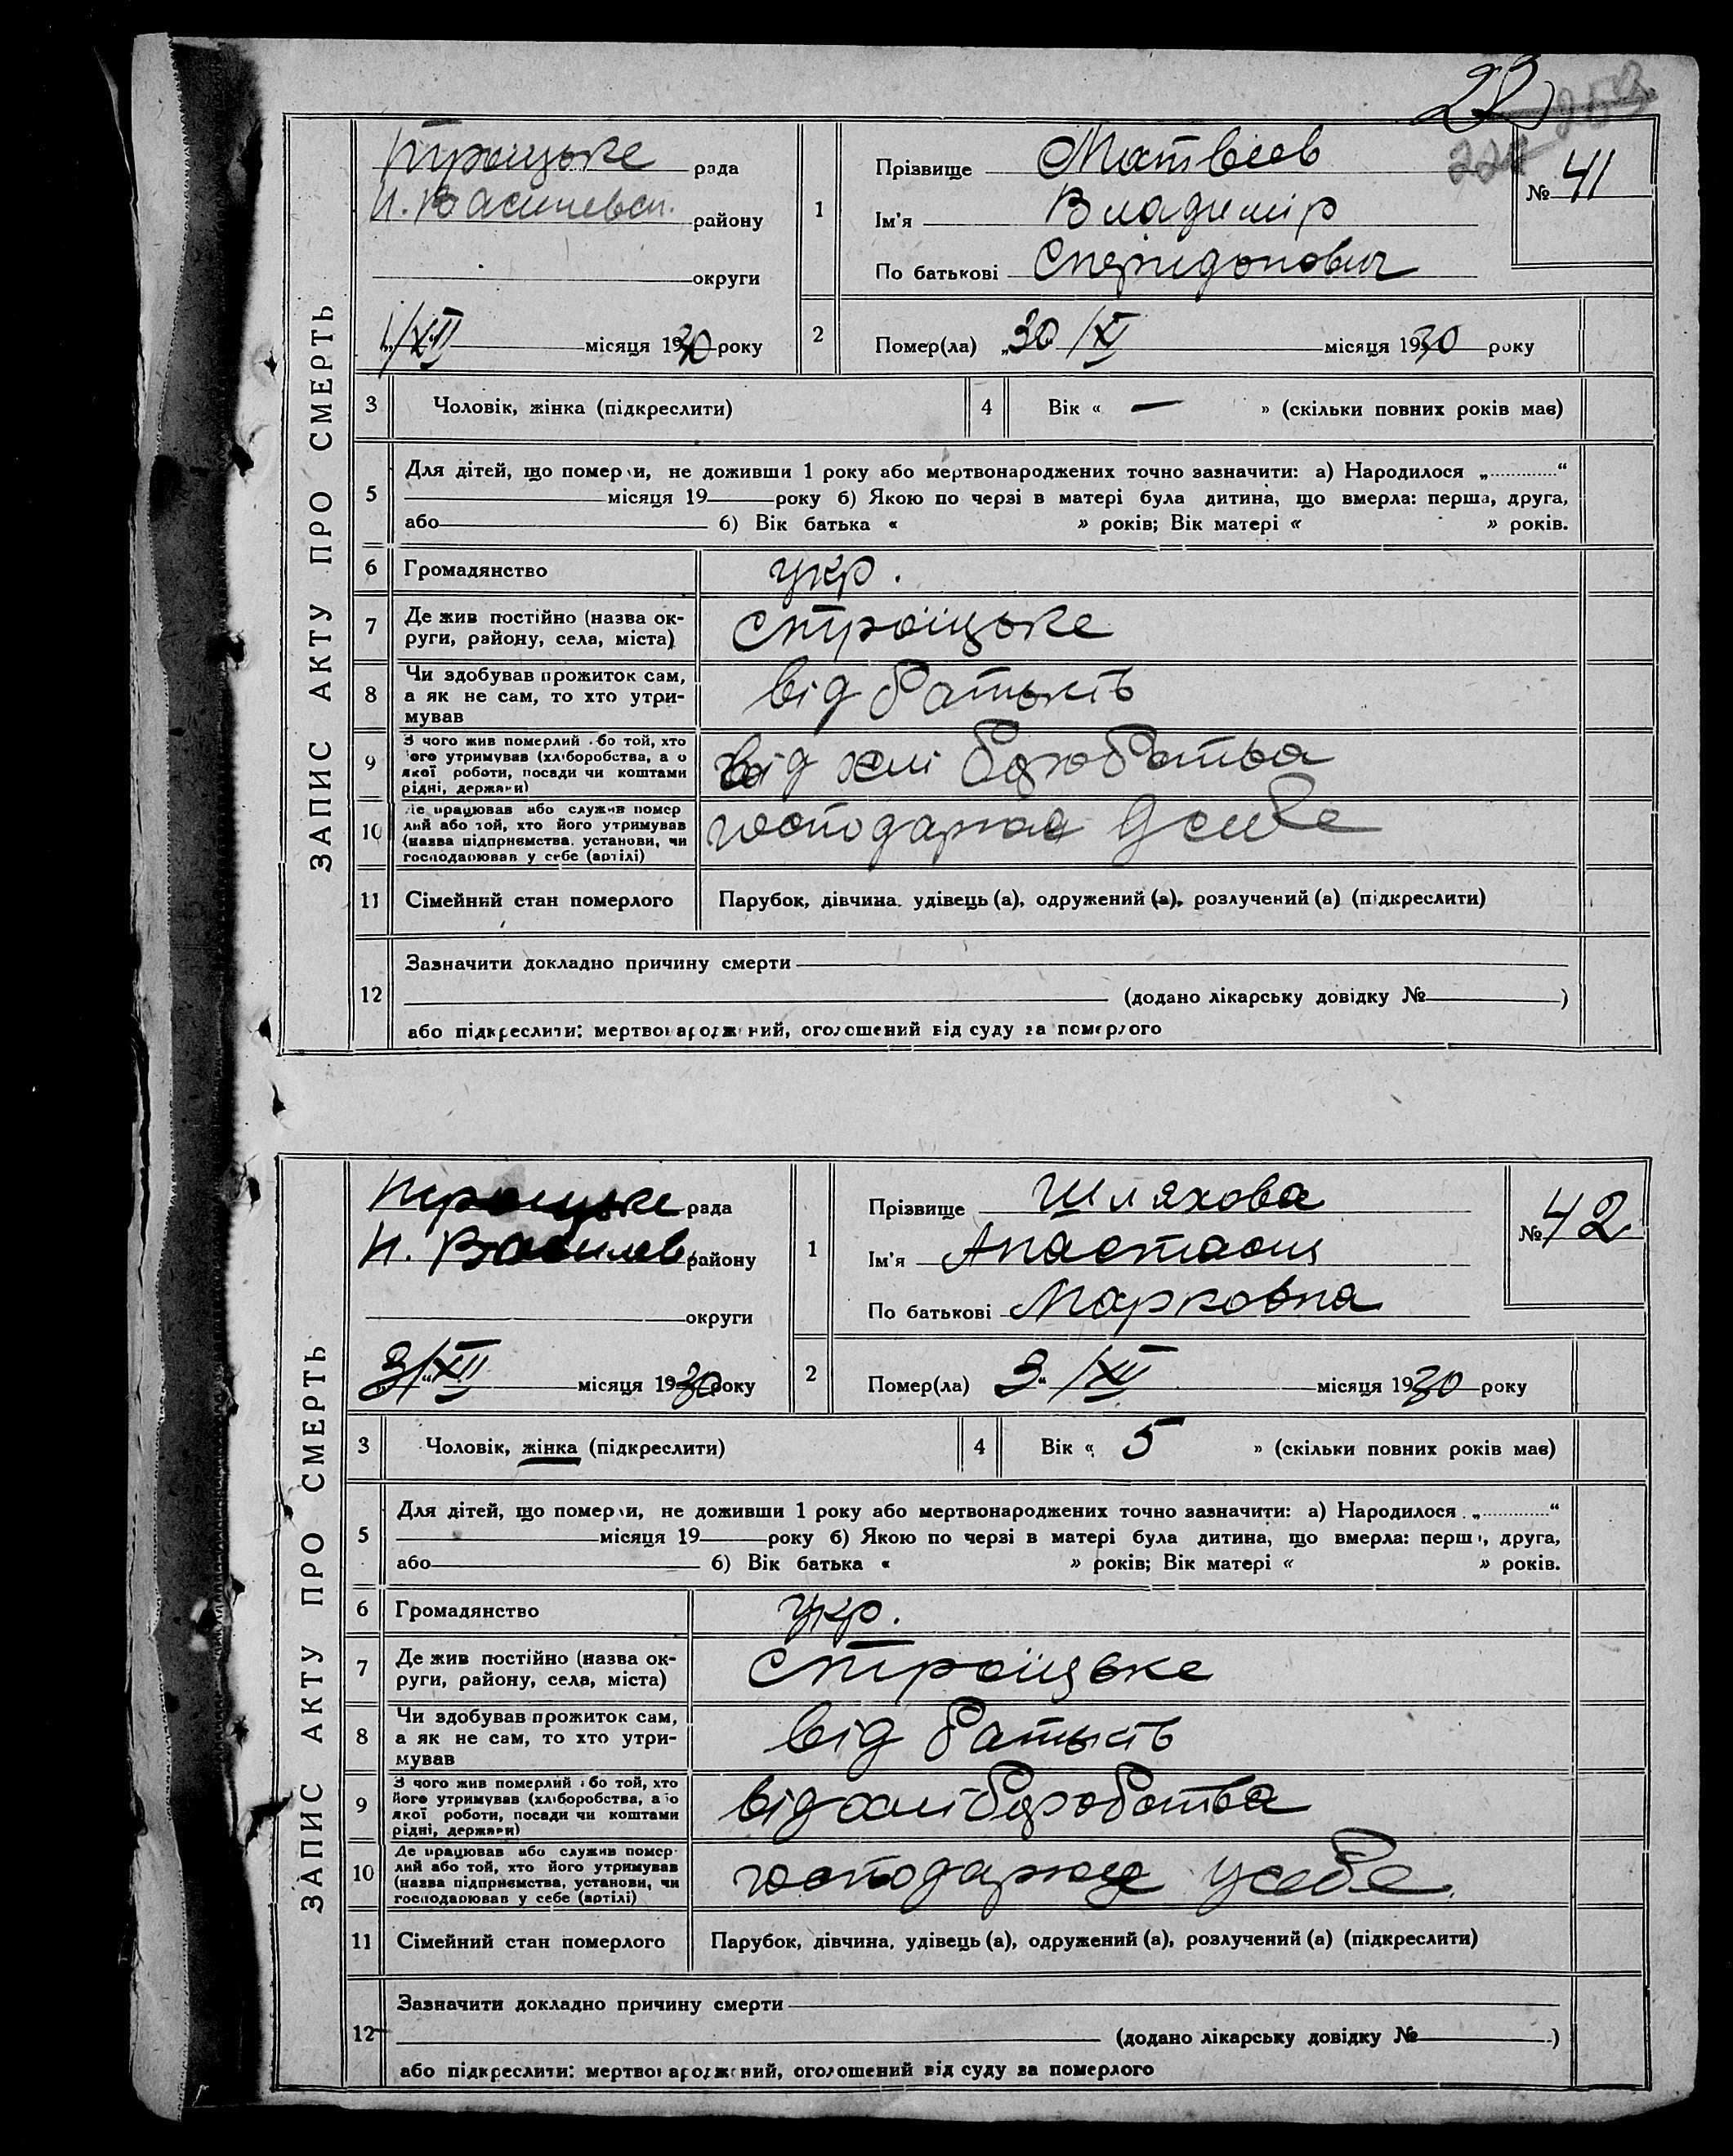 22
ЗАПИС АКТУ ПРО СМЕРТЬ
Троицьке рада
Н. Василевсп. району
округи
1/XII місяця 1930 року
1
Прізвище Матвіев
Ім'я Владимір
По батькові Сперидонович
№ 41
2
Помер(ла) „30 /XI місяця 1930 року
3 Чоловік, жінка (підкреслити)
4 Вік « — » (скільки повних років має)
5
Для дітей, що померли, не доживши 1 року або мертвонароджених точно зазначити: а) Народилося „ “
місяця 19 року б) Якою по черзі в матері була дитина, що вмерла: перша, друга,
або б) Вік батька « » років; Вік матері « » років.
6 Громадянство укр.
7 Де жив постійно (назва ок-
руги, району, села, міста)
с Троїцьке
8 Чи здобував прожиток сам,
а як не сам, то хто утри-
мував
від батьків
9 З чого жив померлий або той, хто
його утримував (хліборобства, або
якої роботи, посади чи коштами
рідні, держави)
від хліборобства
10 Де працював або служив помер
лий або той, хто його утримував
(назва підприємства, установи, чи
господарював у себе (артілі)
господарює у себе
11 Сімейний стан померлого Парубок, дівчина, удівець (а), одружений (а), розлучений (а) (підкреслити)
12
Зазначити докладно причину смерти
(додано лікарську довідку № )
або підкреслити: мертвонароджений, оголошений від суду за померлого
ЗАПИС АКТУ ПРО СМЕРТЬ
Троицьке рада
Н. Василев. району
округи
3/XII місяця 1930 року
1
Прізвище Шляхова
Ім'я Анастасия
По батькові Марковна
№ 42
2
Помер(ла) 3„ /XII місяця 1930 року
3 Чоловік, жінка (підкреслити)
4 Вік « 5 » (скільки повних років має)
5
Для дітей, що померли, не доживши 1 року або мертвонароджених точно зазначити: а) Народилося „ “
місяця 19 року б) Якою по черзі в матері була дитина, що вмерла: перша, друга,
або б) Вік батька « » років; Вік матері « » років.
6 Громадянство укр.
7 Де жив постійно (назва ок-
руги, району, села, міста)
с Троїцьке
8 Чи здобував прожиток сам,
а як не сам, то хто утри-
мував
від батьків
9 З чого жив померлий або той, хто
його утримував (хліборобства, або
якої роботи, посади чи коштами
рідні, держави)
від хліборобства
10 Де працював або служив помер-
лий або той, хто його утримував
(назва підприємства, установи, чи
господарював у себе (артілі)
господарює у себе.
11 Сімейний стан померлого Парубок, дівчина, удівець (а), одружений (а), розлучений (а) (підкреслити)
12
Зазначити докладно причину смерти
(додано лікарську довідку № )
або підкреслити: мертвонароджений, оголошений від суду за померлого